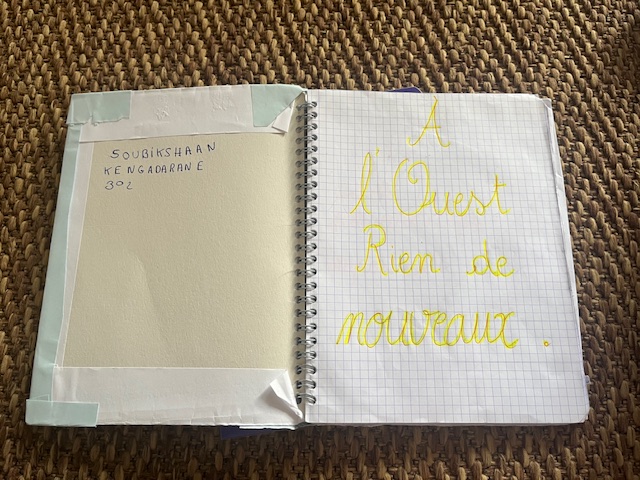 SOUBIKSHAAN
KENGADARANE
302
A
l'Ouest
Rien de
nouveaux.